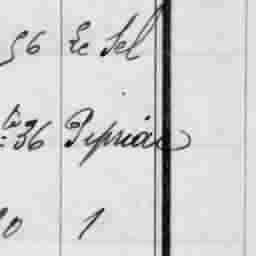 56 Le Sel
te 36 Pipriac
0 1